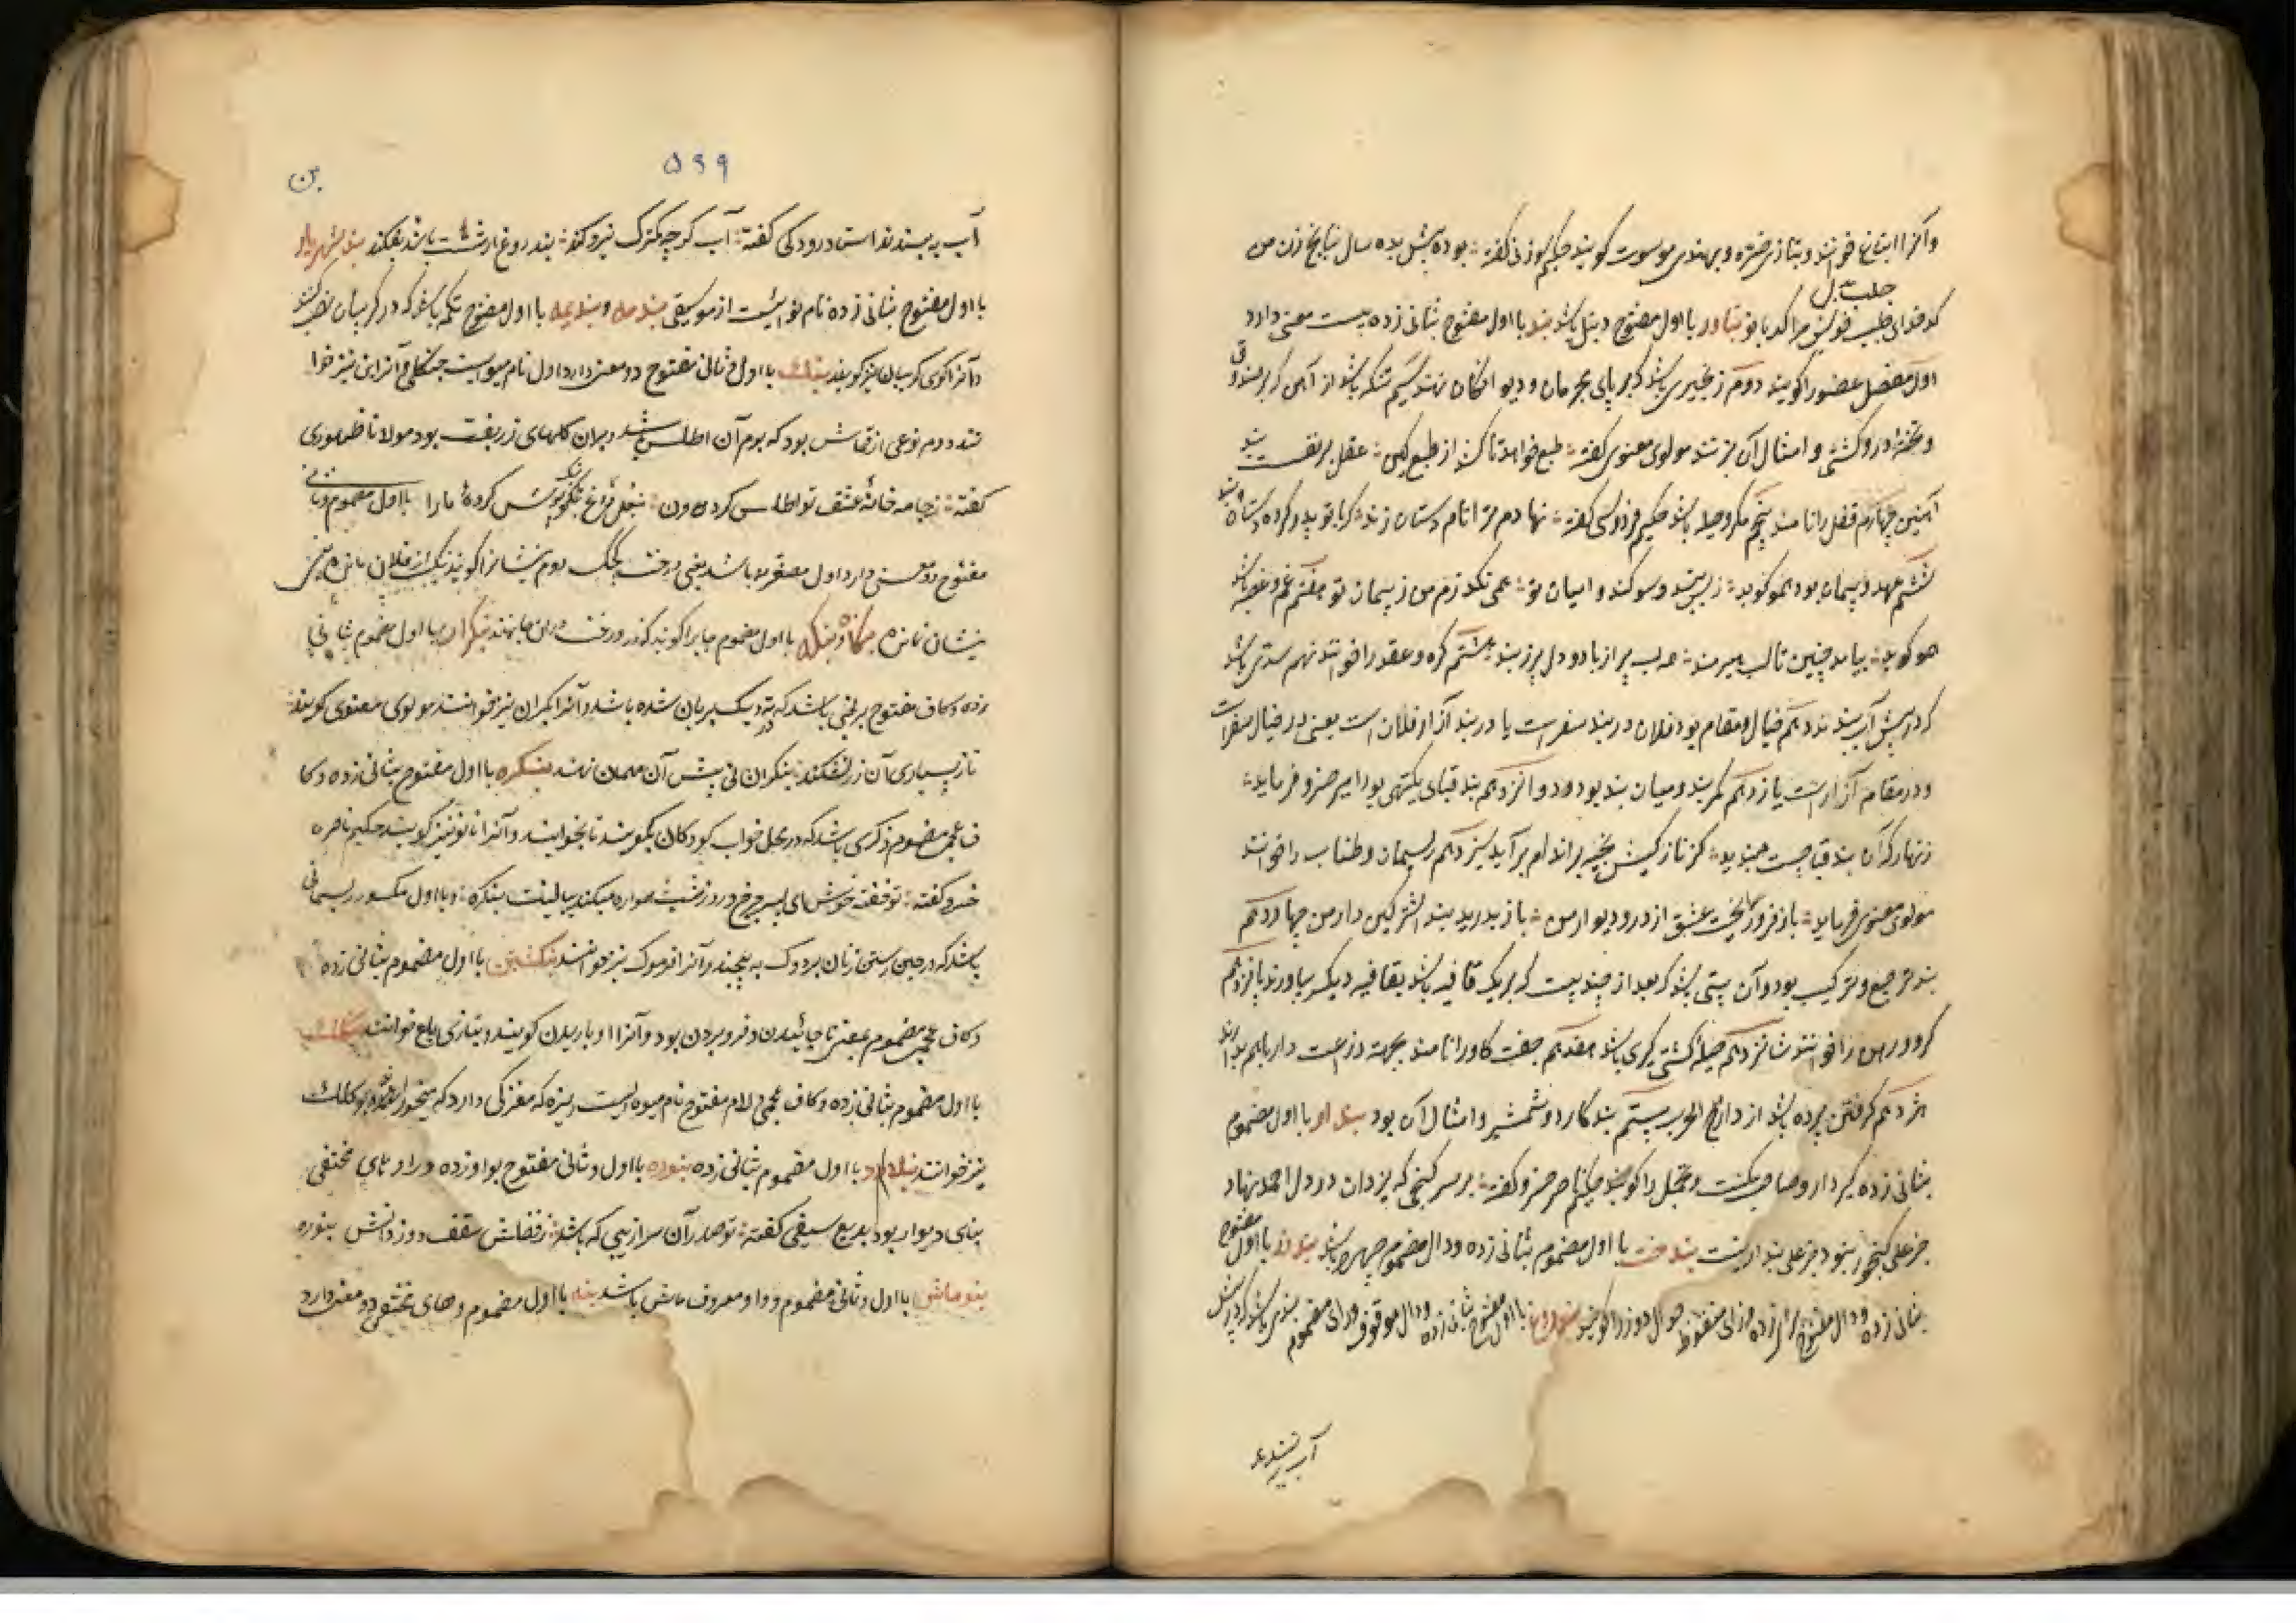 وآنرا انباغ خوانند و بتازی ضره و بهندی سوت گویند حکیم سوزنی گفته بوده پیش بده سال بنانج زن من
جلب
کدخدای جلب خویش مرا کدبانو بناور با اول مفتوح دنبل باشد بند با اول مفتوح بثانی زده بیست معنی دارد
اول مفصل عضو را گویند دوم زنجیری باشد که بر پای مجرمان و دیوانگان نهند سیم تنکه باشد از آهن که بر صندوق
و تخته در و کشتی و امثال آن بزنند مولوی معنوی گفته طبع خواهد تا کشد از طبع کین عقل بر نفس است بند
آهنین چهارم قفل را نامند پنجم مکر و حیله باشد حکیم فردوسی گفته نهادم ترا نام دستان زند که با تو پدر کرد دستان و بند
ششم عهد و پیمان بود همو گوید ز بس بند و سوگند و پیمان تو همی نگذرم من ز پیمان تو هفتم غم و غصه باشد
همو گوید بیامد چنین تا لب هیرمند همه لب پر از باد و دل پر ز بند هشتم گره و عقد را خوانند نهم سدی باشد
که در پیش آب بندند دهم خیال و مقام بود فلان در بند سفر است یا در بند آزار فلان است یعنی در خیال سفر است
و در مقام آزار است یازدهم کمربند و میان بند بود دوازدهم بند قبای یکتهی بود امیر خسرو فرماید
زنهار که آن بند قبا چست مبندید کز نازکیش بخیه بر اندام برآید سیزدهم ریسمان و طناب را خوانند
مولوی معنوی فرماید باز فرو ریخت عشق از در و دیوار من باز بدرید بند اشتر کین دار من چهاردهم
بند ترجیع و ترکیب بود و آن بیتی باشد که بعد از چند بیت که بر یک قافیه باشد بقافیه دیگر بیاورند پانزدهم
گرو و رهن را خوانند شانزدهم حیله کشتی گیری باشد هفدهم جفت گاو را نامند بجهت زراعت دارند
هژدهم گرفتن برده باشد از دار الحرب بیستم بند کارد و شمشیر و امثال آن بود بندار با اول مضموم
بثانی زده کیسه دار و صاحب مکنت و تجمل را گویند حکیم ناصر خسرو گفته بر سر گنجی که یزدان در دل احمد نهاد
جز علی گنجور نبود جز علی بندار نیست بندخت با اول مضموم بثانی زده و دال مضموم باشد بندرز با اول مفتوح
بثانی زده و دال مفتوح برای زده و زای منقوط جوال دوز را گویند بندروغ با اول مفتوح بثانی زده و دال موقوف و رای مضموم بندی باشد که در پیش
آب به بندند
۵۹۹
بن
آب به بندند استاد رودکی گفته آب گرچه کمترک نیرو کند بندروغ ار سست باشد بفکند بند شهریار
با اول مفتوح بثانی زده نام نوائیست از موسیقی بندمه و بندیمه با اول مفتوح تکمه باشد که در گریبان نصب کنند
و آنرا گوی گریبان نیز گویند بنک با اول و ثانی مفتوح دو معنی دارد اول نام میوه ایست جنگلی و آنرا بن نیز خوا
نند دوم نوعی از قماش بود که بوم آن اطلس باشد و بران گلهای زربفت بود مولانا ظهوری
گفته ز جامه خانه عشق تو اطلس گردون بنعل و داغ بنک پوش کرده ما را با اول مضموم و ثانی
مفتوح دو معنی دارد اول مصغر بن باشد یعنی درخت کوچک دوم نشان را گویند بنک از فلان نمانده یعنی
نشان نمانده بنگاه و بنگه با اول مضموم جا را گویند که زر و رخت در آن جا نهند بنکران با اول مضموم بثانی
زده و کاف مفتوح برنجی باشد که در ته دیگ بریان شده باشد و آنرا نیز خوانند مولوی معنوی گوید
تا ز بسیاری آن زر نشکهند بنکرانی پیش آن مهمان نهند بنگره با اول مفتوح بثانی زده و کا
ف عجمی مضموم ذکری باشد که در محل خواب کودکان بگویند تا بخوابند و آنرا نانو نیز گویند حکیم ناصر
خسرو گفته تو خفته خوش ای پسر چرخ و روز و شب همواره میکند ببالینت بنگره و با اول مکسور ریسمانی
باشد که در حین رشتن زنان بر دوک به پیچند و آنرا فرموک نیز خوانند بنگشتن با اول مضموم بثانی زده
و کاف عجمی مضموم بمعنی ناجائیدن و فرو بردن بود و آنرا اوباریدن گویند و بتازی بلع خوانند بنکلک
با اول مضموم بثانی زده و کاف عجمی و لام مفتوح نام میوه ایست ریزه که مغزکی دارد که میخورند و آنرا ونکلک
نیز خوانند بنلاد با اول مضموم بثانی زده بنوره با اول و ثانی مفتوح بواو زده و را و های مختفی
بنای دیوار بود بدیع سیفی گفته تو صدر آن سرائی که باشد ز فضلش سقف و از دانش بنوره
بنوماش با اول و ثانی مضموم و واو معروف ماش باشد بنه با اول مضموم و های مختفی دو معنی دارد